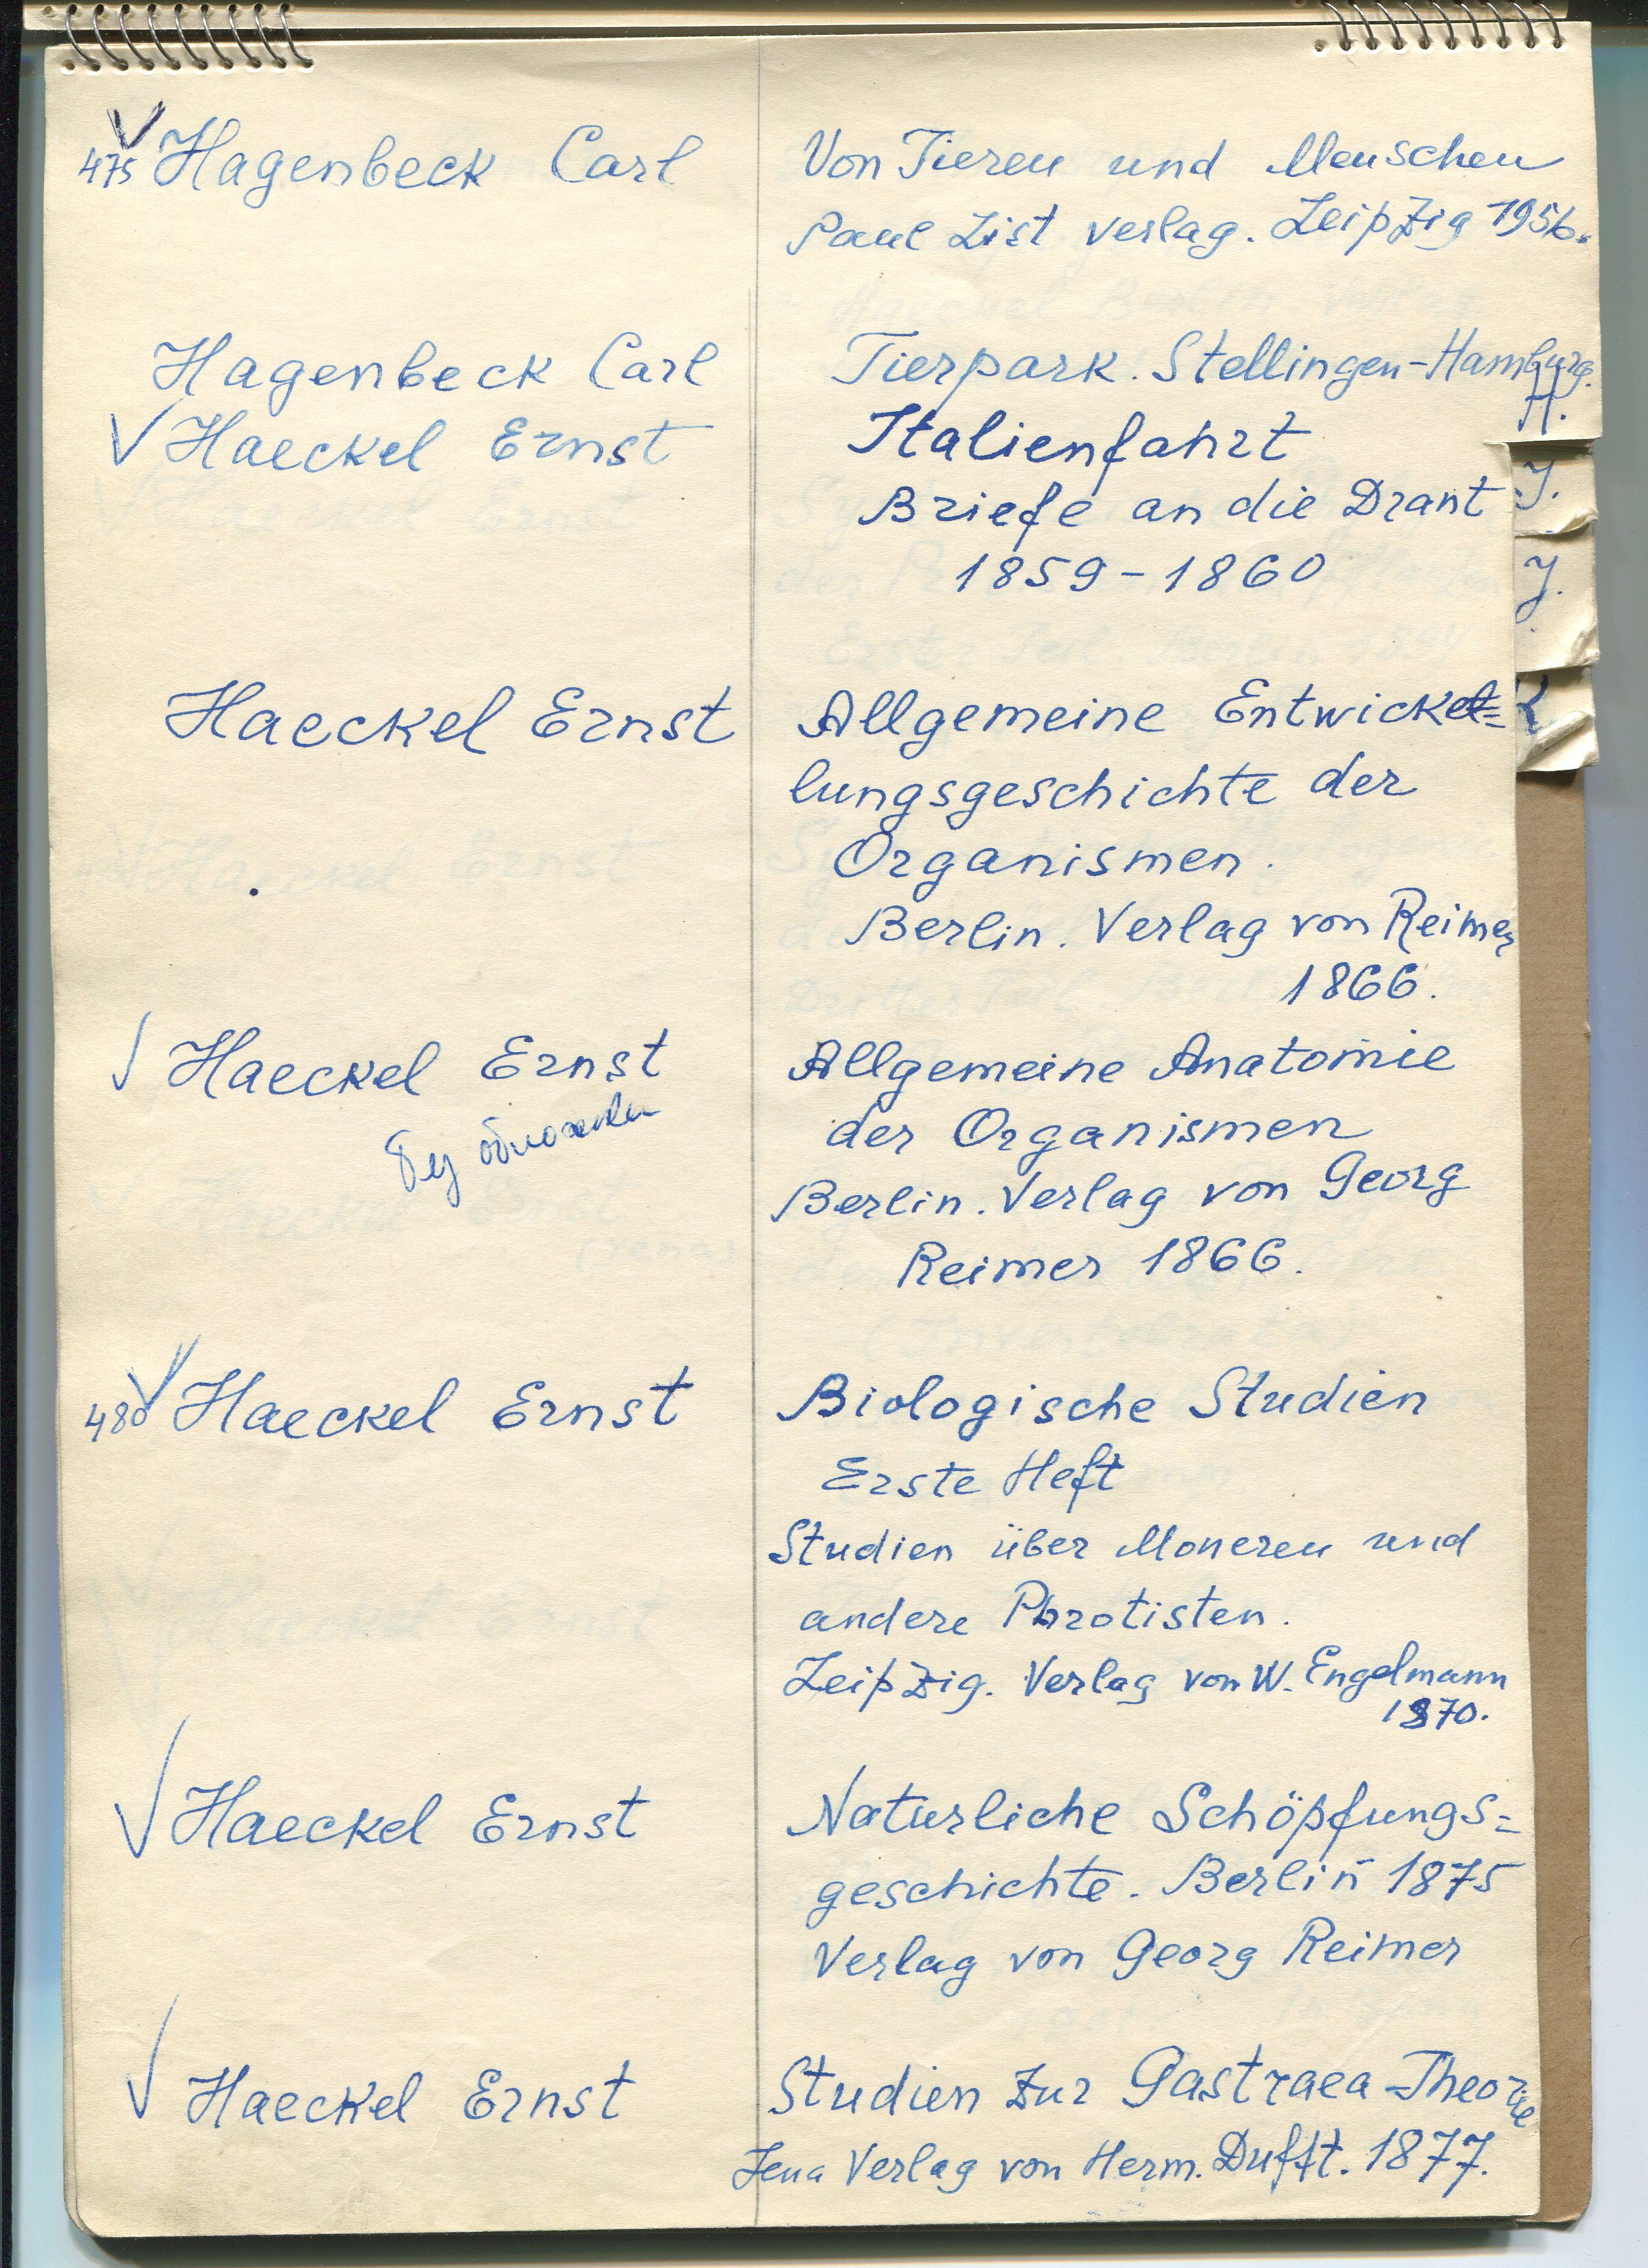 475 Hagenbeck Carl
Von Tieren und Menschen
Paul List verlag. Leipzig 1956.
Hagenbeck Carl
Tierpark. Stellingen-Hamburg.
H.
Haeckel Ernst
Italienfahrt
J.
Briefe an die Drant
1859-1860
J.
Haeckel Ernst
Allgemeine Entwickel=
K
lungsgeschichte der
Organismen.
Berlin. Verlag von Reimer
1866.
Haeckel Ernst
Allgemeine Anatomie
без обложки
der Organismen
Berlin. Verlag von Georg
Reimer 1866.
480 Haeckel Ernst
Biologische Studien
Erste Heft
Studien über Moneren und
andere Phrotisten.
Leipzig. Verlag von W. Engelmann
1870.
Haeckel Ernst
Naturliche Schöpfungs=
geschichte. Berlin 1875
Verlag von Georg Reimer
Haeckel Ernst
Studien zur Gastraea-Theorie
Jena Verlag von Herm. Dufft. 1877.